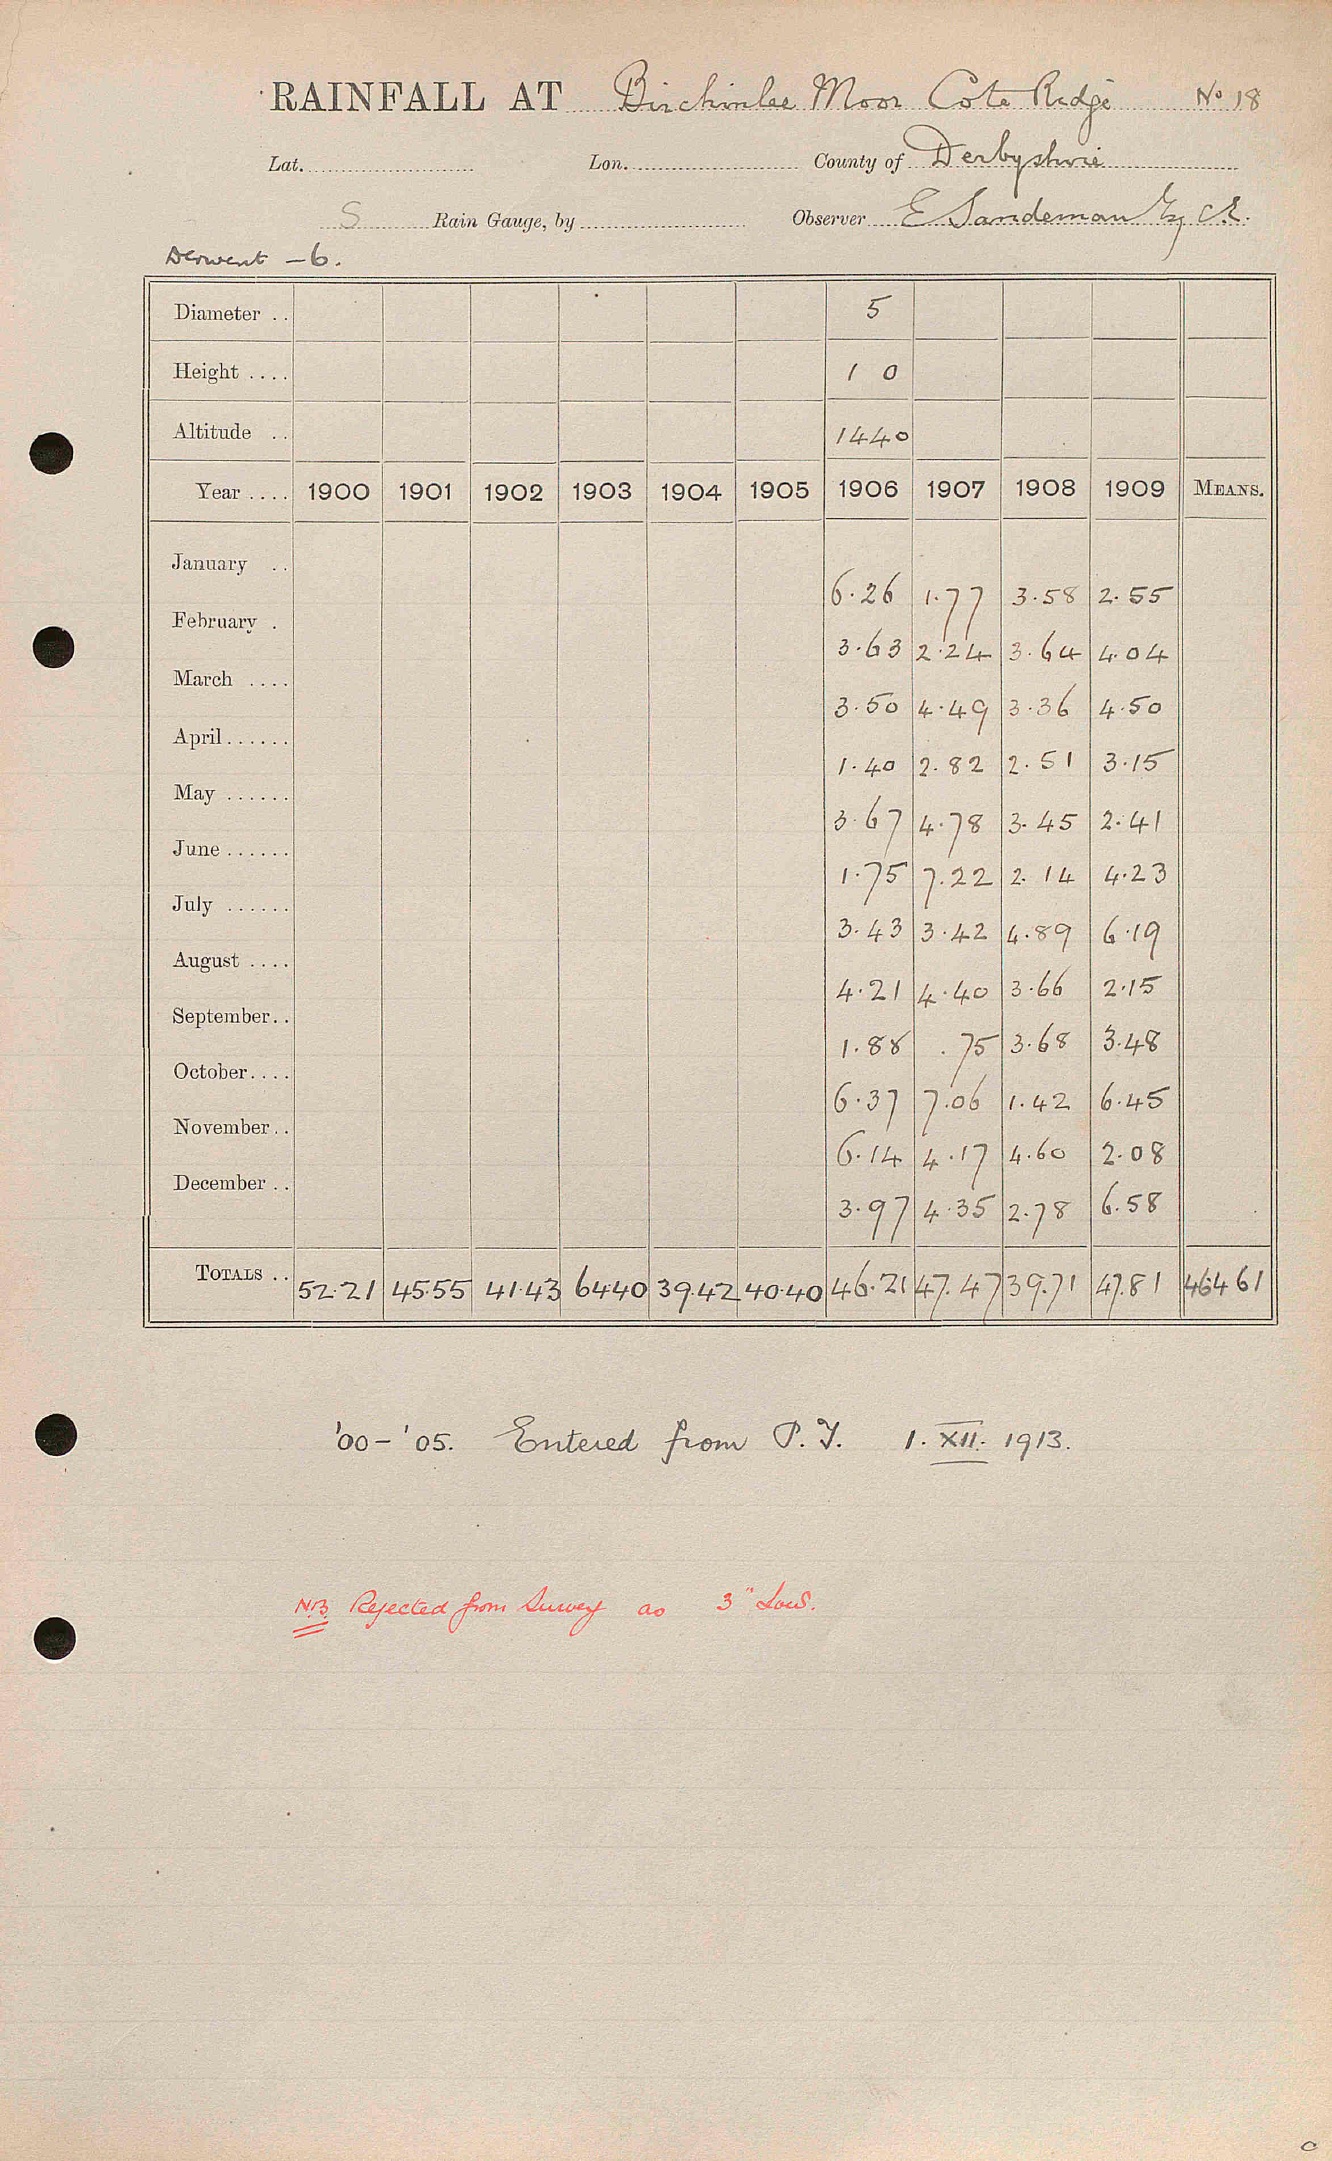 RAINFALL AT Birchinlee Moor Cote Ridge No 18
Lat. Lon. County of Derbyshire
S Rain Gauge, by Observer E Sandeman Esq C.E.
Derwent - 6.
Diameter .. 5
Height .... 1 0
Altitude .. 1440
Year .... 1900 1901 1902 1903 1904 1905 1906 1907 1908 1909 MEANS.
January .. 6.26 1.77 3.58 2.55
February . 3.63 2.24 3.64 4.04
March .... 3.50 4.49 3.36 4.50
April...... 1.40 2.82 2.51 3.15
May ...... 3.67 4.78 3.45 2.41
June ...... 1.75 7.22 2.14 4.23
July ...... 3.43 3.42 4.89 6.19
August .... 4.21 4.40 3.66 2.15
September.. 1.88 .75 3.68 3.48
October.... 6.37 7.06 1.42 6.45
November.. 6.14 4.17 4.60 2.08
December .. 3.97 4.35 2.78 6.58
TOTALS .. 52.21 45.55 41.43 64.40 39.42 40.40 46.21 47.47 39.71 47.81 46461
'00-'05. Entered from P.Y. 1. XII. 1913.
N.B. Rejected from Survey as 3" Low.
c